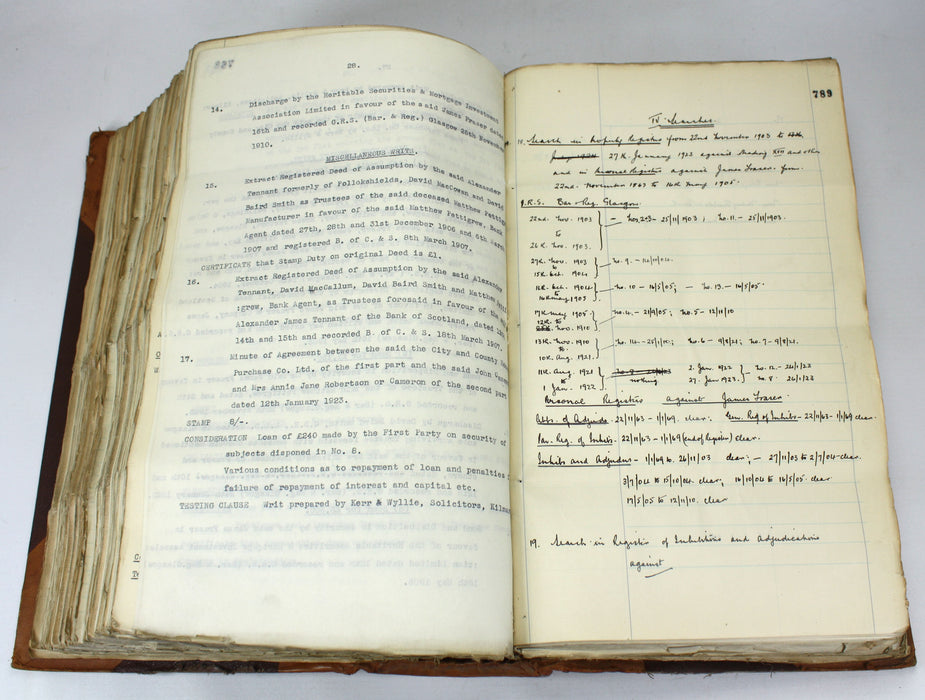 28.
14. Discharge by the Heritable Securities & Mortgage Investment
Association Limited in favour of the said James Fraser dated
16th and recorded G.R.S. (Bar. & Reg.) Glasgow 25th November
1910.
MISCELLANEOUS WRITS.
15. Extract Registered Deed of Assumption by the said Alexander
Tennant formerly of Pollokshields, David MacCowan and David
Baird Smith as Trustees of the said deceased Matthew Pettigrew
Manufacturer in favour of the said Matthew Pettigrew, Bank
Agent dated 27th, 28th and 31st December 1906 and 6th
1907 and registered B. of C. & S. 8th March 1907.
CERTIFICATE that Stamp Duty on original Deed is £1.
16. Extract Registered Deed of Assumption by the said Alexander
Tennant, David MacCallum, David Baird Smith and Matthew
igrew, Bank Agent, as Trustees foresaid in favour of the
Alexander James Tennant of the Bank of Scotland, dated
14th and 15th and recorded B. of C. & S. 18th March 1907.
17. Minute of Agreement between the said City and County
Purchase Co. Ltd. of the first part and the said John
and Mrs Annie Jane Robertson or Cameron of the second part
dated 12th January 1923.
STAMP 8/-.
CONSIDERATION Loan of £240 made by the First Party on security of
subjects disponed in No. 8.
Various conditions as to repayment of loan and penalties
failure of repayment of interest and capital etc.
TESTING CLAUSE Writ prepared by Kerr & Wyllie, Solicitors,
789
IV Searches.
Search in Property Register from 22nd November 1903 to
27th January 1923 against and other
and in Personal Register against James Fraser from
22nd November 1863 to 16th May 1905.
G.R.S. Bar & Reg. Glasgow.
22nd Nov. 1903 - Nos 2 & 3 - 25/11/1903; No. 11. - 25/11/1903.
to
26th Nov. 1903.
27th Nov. 1903 No. 9. -
to
15th Oct. 1904
1904 No. 10 - 16/5/05; - No. 13. - 16/5/05.
to
16th May 1905
17th May 1905 No. 4. - 21/9/05; No. 5 - 12/11/10
12th to
Nov. 1910
13th Nov. 1910 No. 14. - 25/11/10; No. 6 - 9/8/21; No. 7 - 9/8/21.
to
10th Aug. 1921.
11th Aug. 1921 2 Jan. 1922 No. 12. - 26/1/23
to nothing 27. Jan 1923. No. 8. 26/1/23
1 Jan. 1922.
Personal Registers against James Fraser
Abbs. of Adjuds. 22/11/63 - 1/1/69. clear. Gen. Reg. of Inhibs - 22/11/63 - 1/1/69 clear.
Par. Reg. of Inhibs. - 22/11/63 - 1/1/69 (end of register) clear.
Inhibs and Adjuds - 1/1/69 to 26/11/03 clear; - 27/11/03 to 2/7/04 clear.
3/7/04 to 15/10/04 clear; 16/10/04 to 16/5/05 clear
17/5/05 to 12/11/10. clear
19. Search in Register of Inhibitions and Adjudications
against